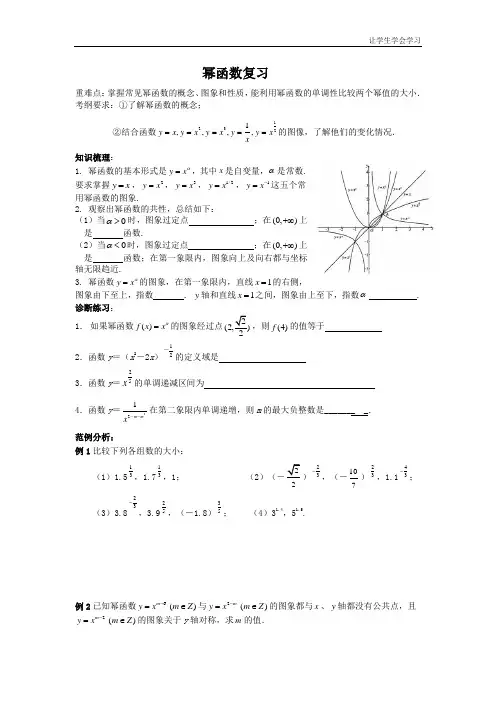 让学生学会学习
幂函数复习
重难点：掌握常见幂函数的概念、图象和性质，能利用幂函数的单调性比较两个幂值的大小.
考纲要求：①了解幂函数的概念；
②结合函数 y = x, y = x², y = x³, y = 1/x, y = x^(1/2) 的图像，了解他们的变化情况.
知识梳理：
1. 幂函数的基本形式是 y = x^α，其中 x 是自变量，α 是常数.
要求掌握 y = x，y = x²，y = x³，y = x^(1/2)，y = x^(-1) 这五个常
用幂函数的图象.
2. 观察出幂函数的共性，总结如下：
（1）当 α > 0 时，图象过定点 ；在 (0,+∞) 上
是 函数.
（2）当 α < 0 时，图象过定点 ；在 (0,+∞) 上
是 函数；在第一象限内，图象向上及向右都与坐标
轴无限趋近.
3. 幂函数 y = x^α 的图象，在第一象限内，直线 x = 1 的右侧，
图象由下至上，指数 . y 轴和直线 x = 1 之间，图象由上至下，指数 α .
诊断练习：
1. 如果幂函数 f(x) = x^α 的图象经过点 (2, √2/2)，则 f(4) 的值等于
2．函数 y＝（x²－2x）^(-1/2) 的定义域是
3．函数 y＝x^(2/5) 的单调递减区间为
4．函数 y＝1/x^(2-m-m²) 在第二象限内单调递增，则 m 的最大负整数是_______ _．
范例分析：
例1 比较下列各组数的大小：
（1）1.5^(1/3)，1.7^(1/3)，1； （2）（－√2/2）^(-2/3)，（－10/7）^(2/3)，1.1^(-4/3)；
（3）3.8^(-2/3)，3.9^(2/5)，（－1.8）^(3/5)； （4）3^1.4，5^1.5.
例2 已知幂函数 y = x^(m-6) (m∈Z) 与 y = x^(2-m) (m∈Z) 的图象都与 x、y 轴都没有公共点，且
y = x^(m-2) (m∈Z) 的图象关于 y 轴对称，求 m 的值．